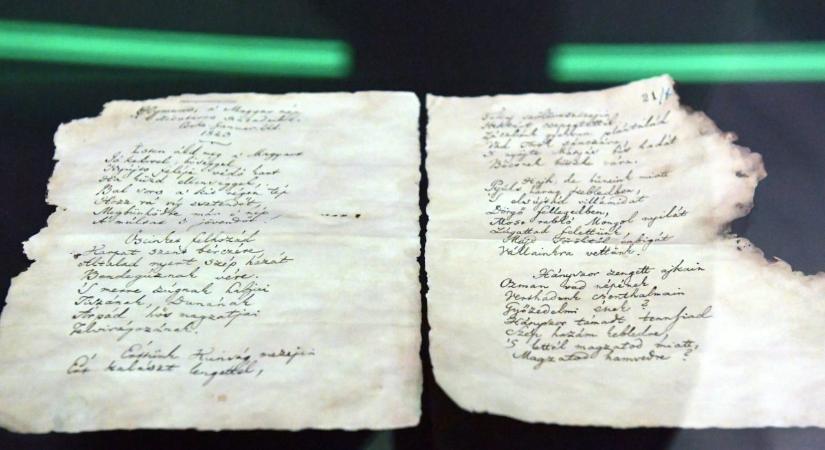 Hymnus, a' Magyar nép
zivataros századaiból
Cseke Januar. 22d.
1823
Isten áldd meg a' Magyart
Jó kedvvel, bőséggel,
Nyújts feléje védő kart
Ha küzd ellenséggel;
Bal sors a' kit régen tép
Hozz rá víg esztendőt,
Megbünhödte már e' nép
A' múltat 's jövendőt.
Őseinket felhozád
Kárpát szent bérczére,
Általad nyert szép hazát
Bendegúznak vére.
'S merre zúgnak habjai
Tiszának, Dunának
Árpád hős magzatjai
Felvirágzának.
Értünk Kunság mezein
Ért kalászt lengettél,
21/
Tokaj szőllővesszein
Nektárt csepegtettél.
Zászlónk gyakran plántálád
Vad Török sánczára,
'S nyögte Mátyás bús hadát
Bécsnek büszke vára.
Hajh, de bűneink miatt
Gyúlt harag kebledben,
'S elsújtád villámidat
Dörgő fellegedben,
Most rabló Mongol nyilát
Zúgattad felettünk,
Majd Töröktől rabigát
Vállainkra vettünk.
Hányszor zengett ajkain
Ozman vad népének
Vert hadunk csonthalmain
Győzedelmi ének?
Hányszor támadt tenfiad
Szép hazám kebledre,
'S lettél magzatod miatt
Magzatod hamvedre?